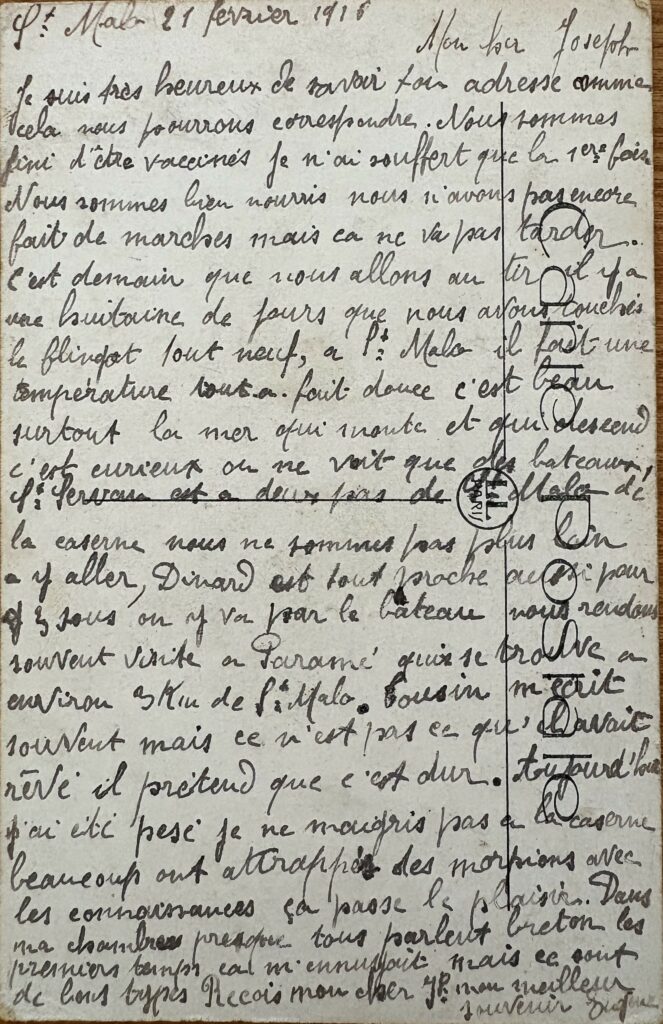 St Malo 21 février 1916
Mon cher Joseph
Je suis très heureux de savoir ton adresse comme
cela nous pourrons correspondre. Nous sommes
fini d'être vaccinés je n'ai souffert que la 1ere fois
Nous sommes bien nourris nous n'avons pas encore
fait de marches mais ca ne va pas tarder.
c'est demain que nous allons au tir il y a
une huitaine de jours que nous avons touchés
le flingot tout neuf, a St Malo il fait une
température tout a fait douce c'est beau
surtout la mer qui monte et qui descend
c'est curieux on ne voit que des bateaux,
St Servan est a deux pas de St Malo de
la caserne nous ne sommes pas plus loin
a y aller, Dinard est tout proche aussi pour
3 sous on y va par le bateau nous rendons
souvent visite a Paramé qui se trouve a
environ 3 Km de St Malo. Cousin m'écrit
souvent mais ce n'est pas ce qu'il avait
rêvé il prétend que c'est dur. aujourd'hui
j'ai été pesé je ne maigris pas a la caserne
beaucoup ont attrappés des morpions avec
les connaissances ça passe le plaisir. Dans
ma chambre presque tous parlent breton les
premiers temps ca m'ennuyait mais ce sont
de bons types Recois mon cher Jh mon meilleur
souvenir Eugène
Carte Postale
LL
PARIS